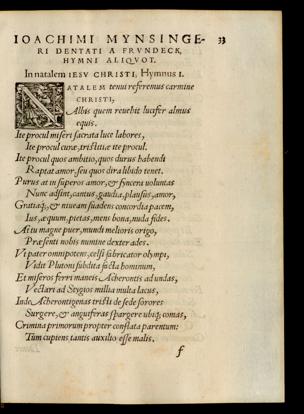 IOACHIMI MYNSINGE- 33
RI DENTATI A FRVNDECK,
HYMNI ALIQVOT.
In natalem IESV CHRISTI, Hymnus I.
NATALEM tenui referemus carmine
CHRISTI,
Albis quem reuehit lucifer almus
equis.
Ite procul miseri sacrata luce labores,
Ite procul curæ, tristitiæ ite procul.
Ite procul quos ambitio, quos durus habendi
Raptat amor, seu quos dira libido tenet.
Purus at in superos amor, & syncera voluntas
Nunc adsint, cantus, gaudia, plausus, amor,
Gratiaq;, & niueam suadens concordia pacem,
Ius, æquum, pietas, mens bona, nuda fides.
At tu magne puer, mundi melioris origo,
Præsenti nobis numine dexter ades.
Vt pater omnipotens, celsi fabricator olympi,
Vidit Plutoni subdita facta hominum,
Et miseros ferri maneis Acherontis ad undas,
Vectari ad Stygios millia multa lacus,
Inde Acherontigenas tristi de sede sorores
Surgere, & anguiferas spargere ubiq; comas,
Crimina primorum propter conflata parentum:
Tum cupiens tantis auxilio esse malis.
f